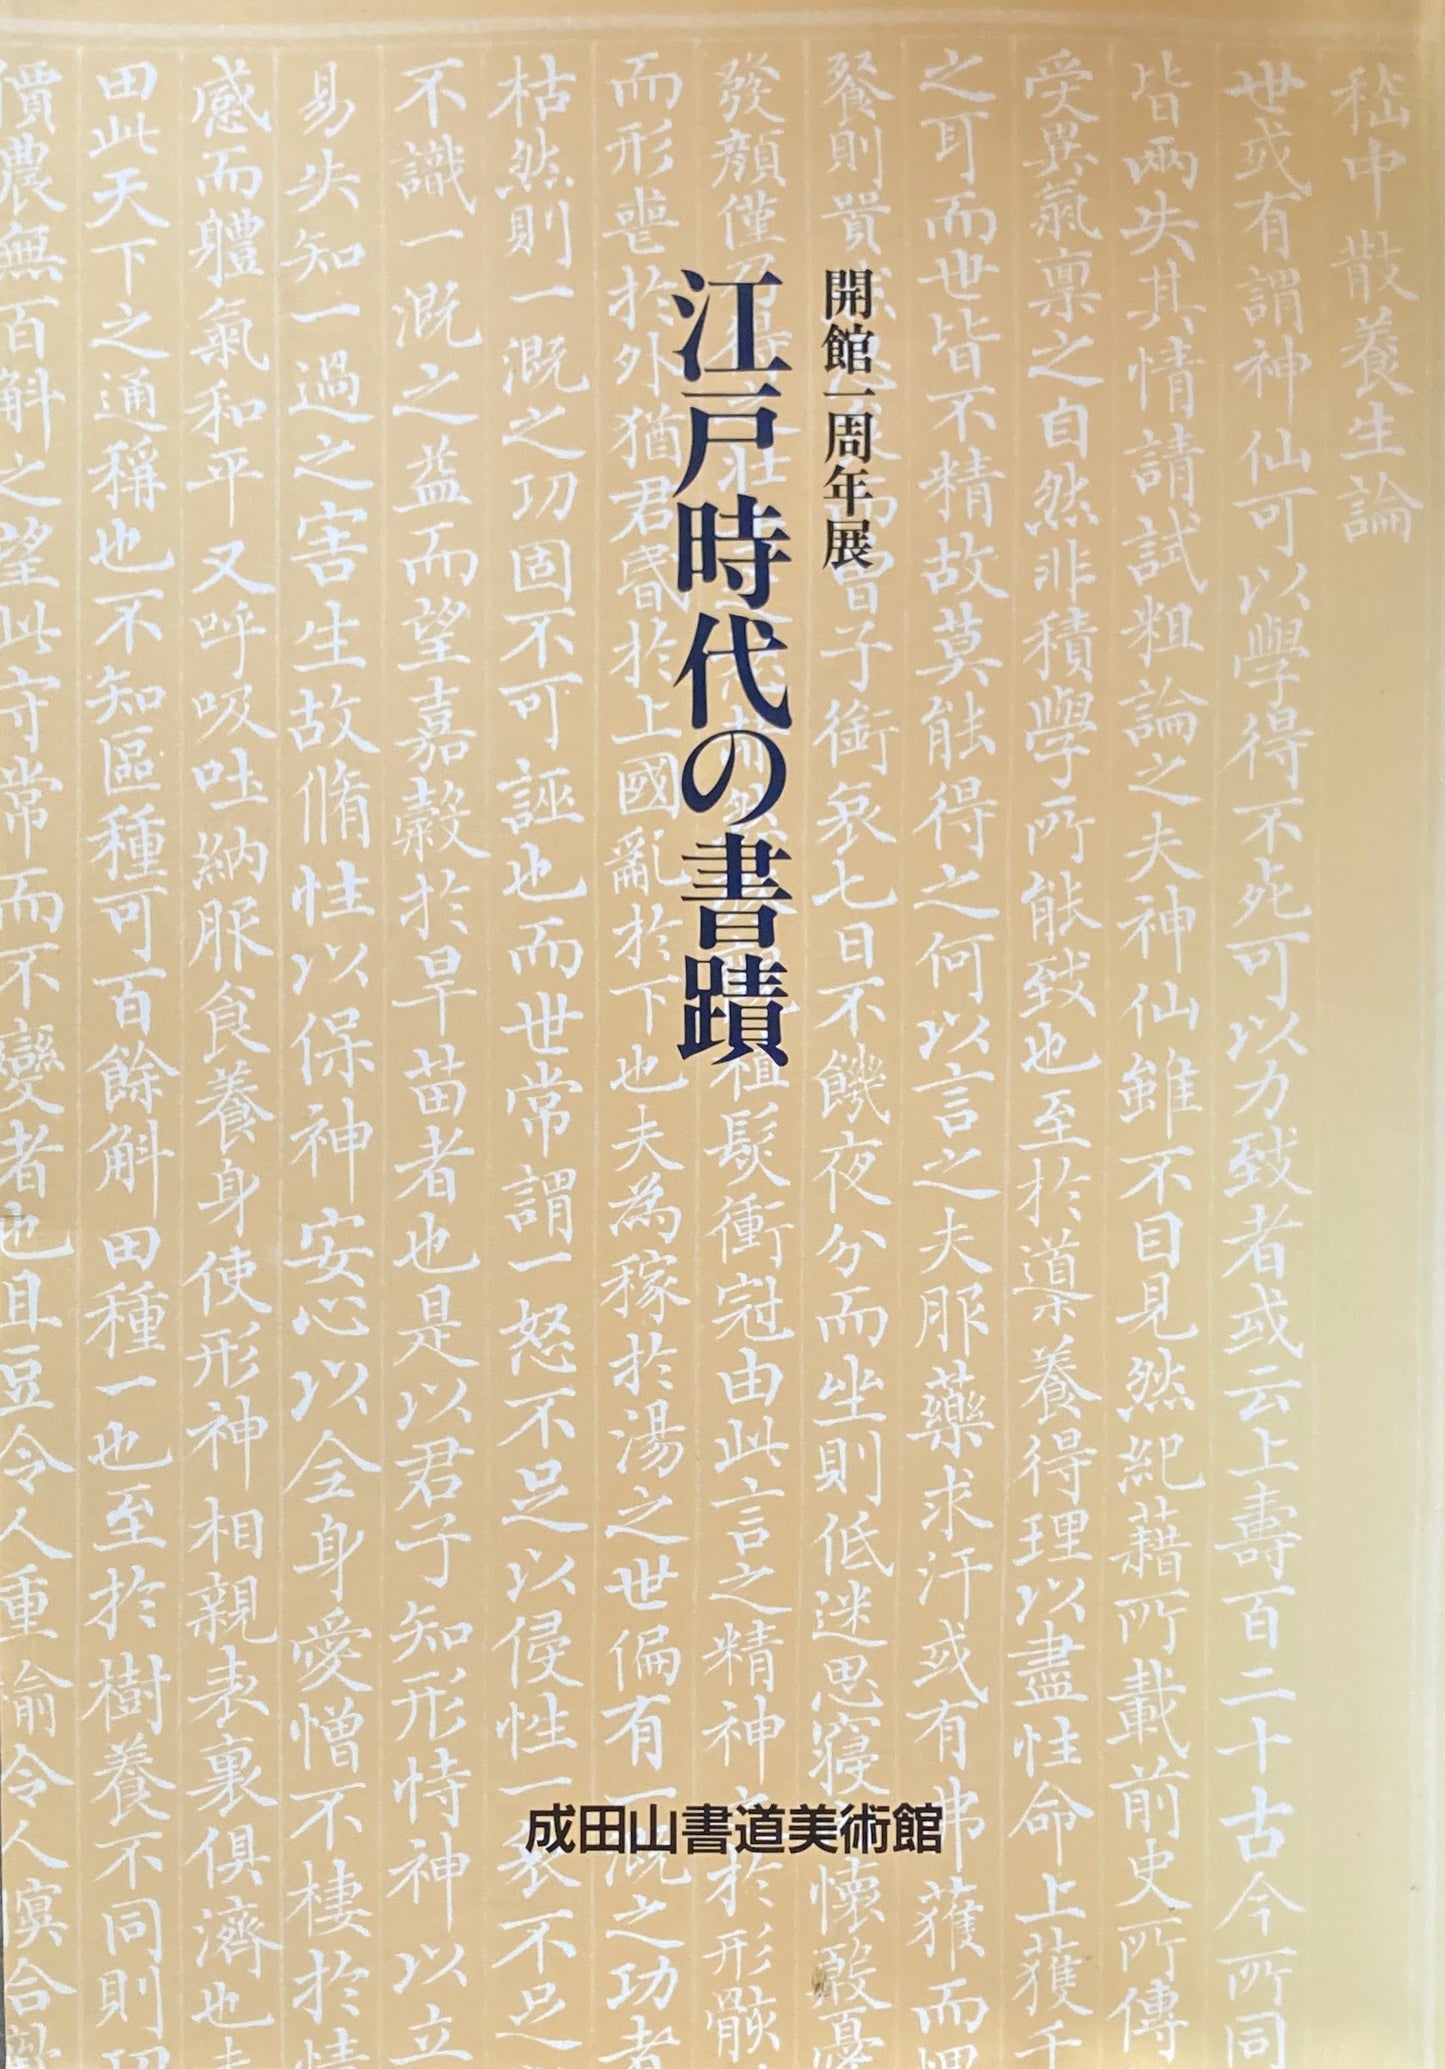 開館一周年展
江戸時代の書蹟
成田山書道美術館
嵇中散養生論
世或有謂神仙可以學得不死可以力致者或云上壽百二十古今所同
皆兩失其情請試粗論之夫神仙雖不目見然紀藉所載前史所傳
受異氣稟之自然非積學所能致也至於道養得理以盡性命上獲千
之耳而世皆不精故莫能得之何以言之夫服藥求汗或有弗獲而愧
餐則曾子銜哀七日不饑夜分而坐則低迷思寢懷殷憂
發顏僅植髮衝冠由此言之精神於形骸
而形喪於外猶君昬於上國亂於下也夫為稼於湯之世偏有一溉之功者
枯然則一溉之功固不可誣也而世常謂一怒不足以侵性一哀不足
不識一溉之益而望嘉穀於旱苗者也是以君子知形恃神以立
易失知一過之害生故脩性以保神安心以全身愛憎不棲於情
感而軆氣和平又呼吸吐納服食養身使形神相親表裏俱濟也夫
田此天下之通稱也不知區種可百餘斛田種一也至於樹養不同則功
價農無百斛之望此守常而不變者也且豆令人重令人合歡